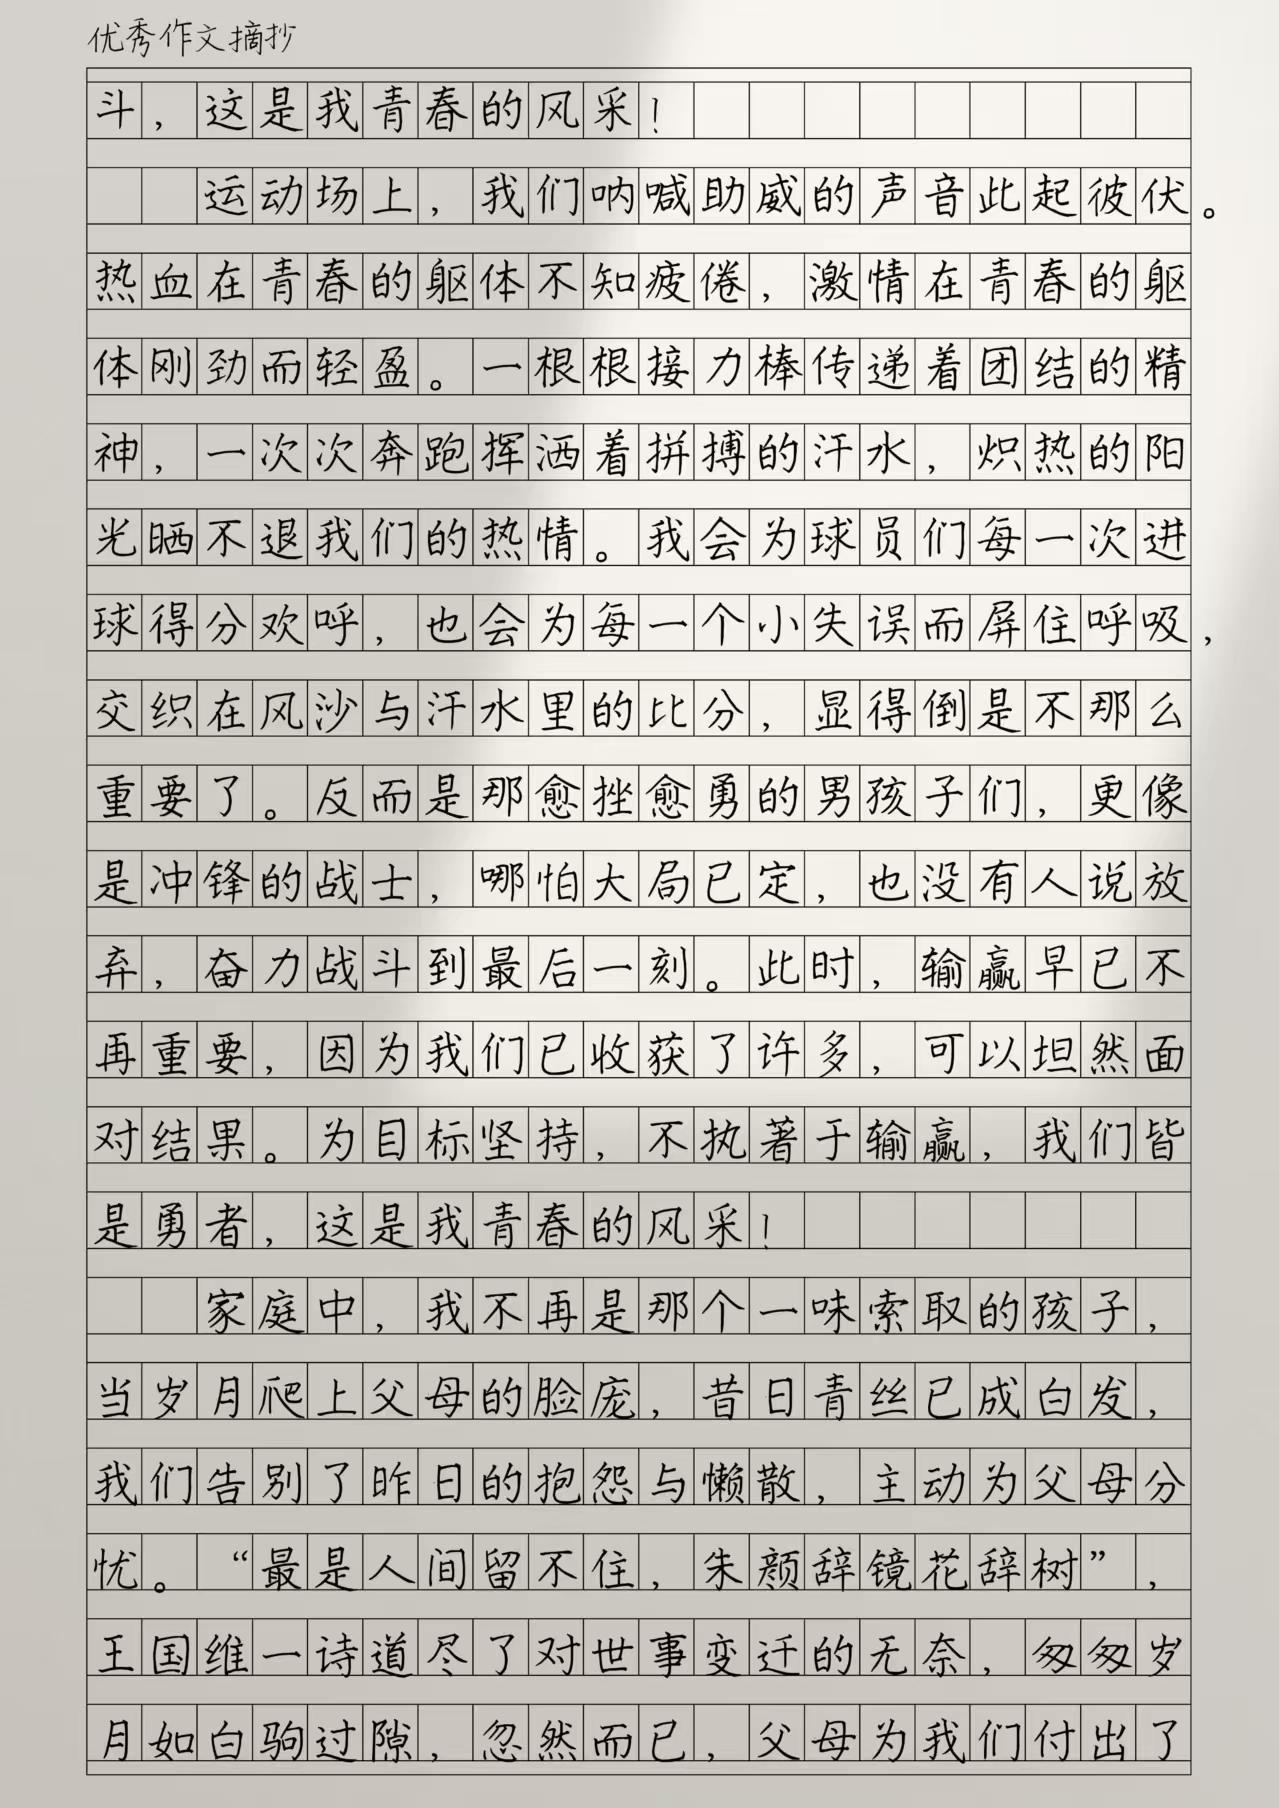 优秀作文摘抄
斗，这是我青春的风采！
运动场上，我们呐喊助威的声音此起彼伏。
热血在青春的躯体不知疲倦，激情在青春的躯
体刚劲而轻盈。一根根接力棒传递着团结的精
神，一次次奔跑挥洒着拼搏的汗水，炽热的阳
光晒不退我们的热情。我会为球员们每一次进
球得分欢呼，也会为每一个小失误而屏住呼吸，
交织在风沙与汗水里的比分，显得倒是不那么
重要了。反而是那愈挫愈勇的男孩子们，更像
是冲锋的战士，哪怕大局已定，也没有人说放
弃，奋力战斗到最后一刻。此时，输赢早已不
再重要，因为我们已收获了许多，可以坦然面
对结果。为目标坚持，不执著于输赢，我们皆
是勇者，这是我青春的风采！
家庭中，我不再是那个一味索取的孩子，
当岁月爬上父母的脸庞，昔日青丝已成白发，
我们告别了昨日的抱怨与懒散，主动为父母分
忧。“最是人间留不住，朱颜辞镜花辞树”，
王国维一诗道尽了对世事变迁的无奈，匆匆岁
月如白驹过隙，忽然而已，父母为我们付出了